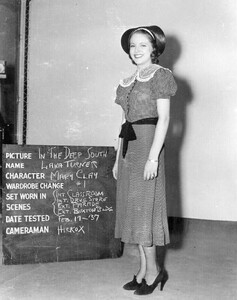 PICTURE IN THE DEEP SOUTH
NAME LANA TURNER
CHARACTER MARY CLAY
WARDROBE CHANGE #1
SET WORN IN INT. CLASSROOM
INT. DRUG STORE
SCENES EXT. PARADE
EXT. BUXTON BLDG
DATE TESTED FEB. 17-'37
CAMERAMAN HICKOX